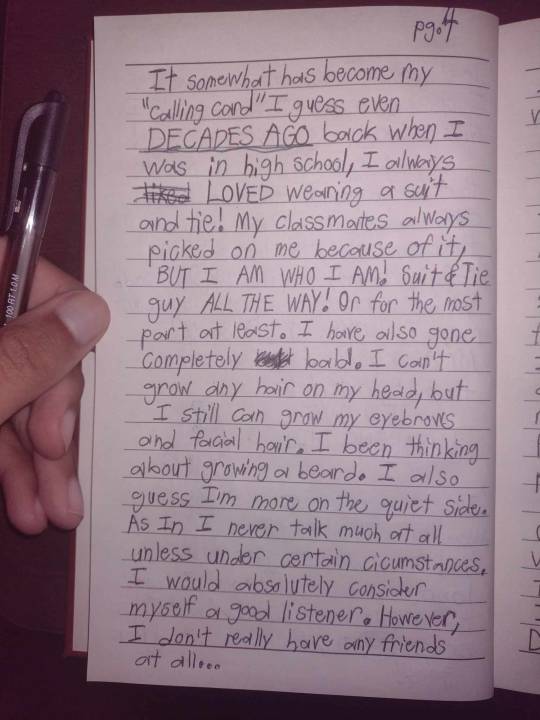 pg.4
It somewhat has become my
"calling card" I guess even
DECADES AGO back when I
was in high school, I always
liked LOVED wearing a suit
and tie! My classmates always
picked on me because of it,
BUT I AM WHO I AM! Suit & Tie
guy ALL THE WAY! Or for the most
part at least. I have also gone
completely bald. I can't
grow any hair on my head, but
I still can grow my eyebrows
and facial hair. I been thinking
about growing a beard. I also
guess I'm more on the quiet side.
As In I never talk much at all
unless under certain cicumstances.
I would absolutely consider
myself a good listener. However,
I don't really have any friends
at all...
100RT·1.0M